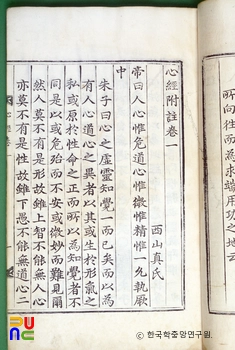 所向往而為求端用功之地云
心經附註卷一
西山真氏
帝曰人心惟危道心惟微惟精惟一允執厥
中
朱子曰心之虛靈知覺一而已矣而以為
有人心道心之異者以其或生於形氣之
私或原於性命之正而所以為知覺者不
同是以或危殆而不安或微妙而難見爾
然人莫不有是形故雖上智不能無人心
亦莫不有是性故雖下愚不能無道心二
© 한국학중앙연구원